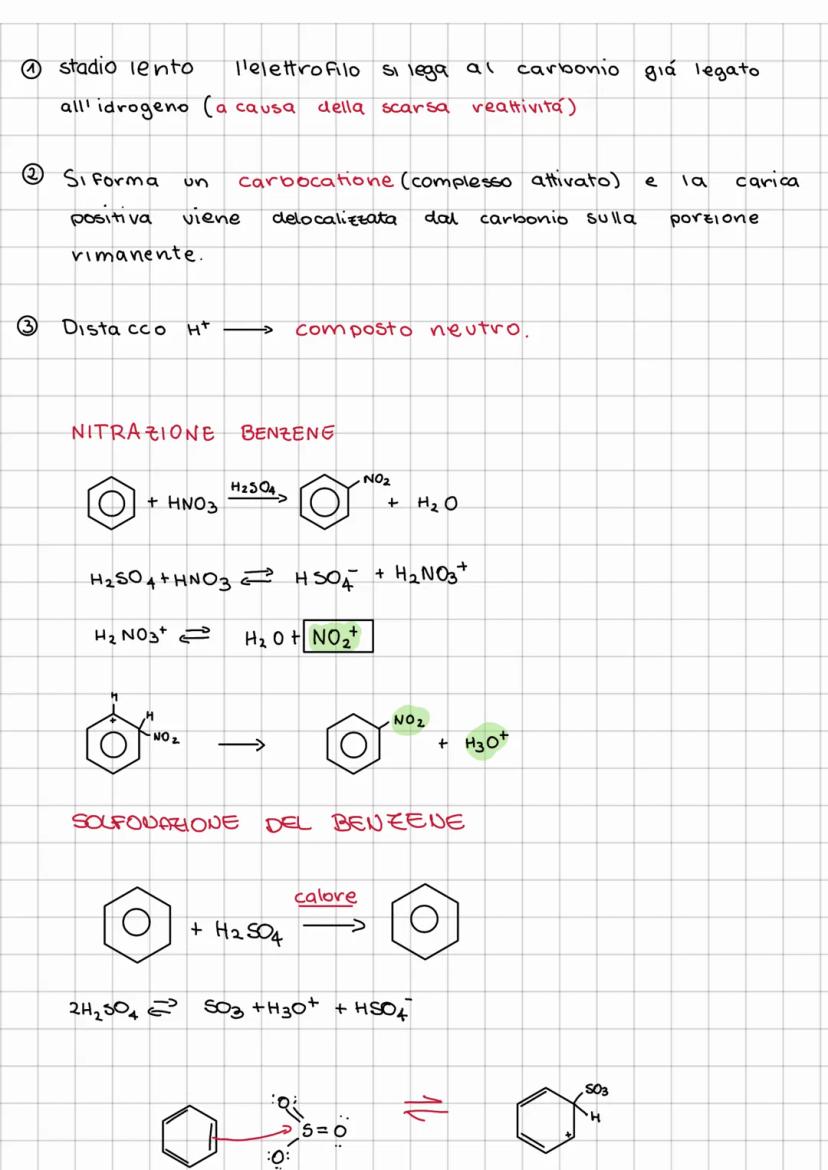 ① stadio lento l'elettrofilo si lega al carbonio giá legato
all'idrogeno (a causa della scarsa reattivitá)
② Si forma un carbocatione (complesso attivato) e la carica
positiva viene delocalizzata dal carbonio sulla porzione
rimanente.
③ Distacco H⁺ ⟶ composto neutro.
NITRAZIONE BENZENE
+ HNO₃ H₂SO₄ ⟶ NO₂ + H₂O
H₂SO₄ + HNO₃ ⇌ HSO₄⁻ + H₂NO₃⁺
H₂NO₃⁺ ⇌ H₂O + NO₂⁺
H + H NO₂ ⟶ NO₂ + H₃O⁺
SOLFONAZIONE DEL BENZENE
+ H₂SO₄ calore ⟶
2H₂SO₄ ⇌ SO₃ + H₃O⁺ + HSO₄⁻
:O: S=O :O: ⇌ SO₃ H +